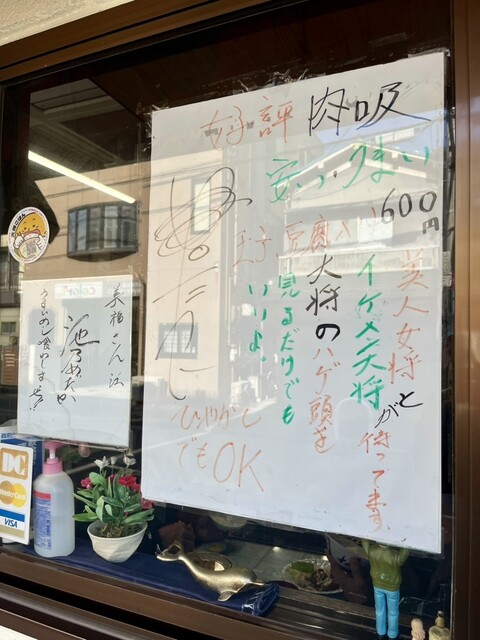 好評 肉吸
安い、うまい
玉子 豆腐入い600円
美人女将と
イケメン大将が待ってます
大将のハゲ頭を
見るだけでも
いいよ。
ひやかし
でもOK
池乃めだか
うまいめし食わすぜ!!
DC
MasterCard
VISA